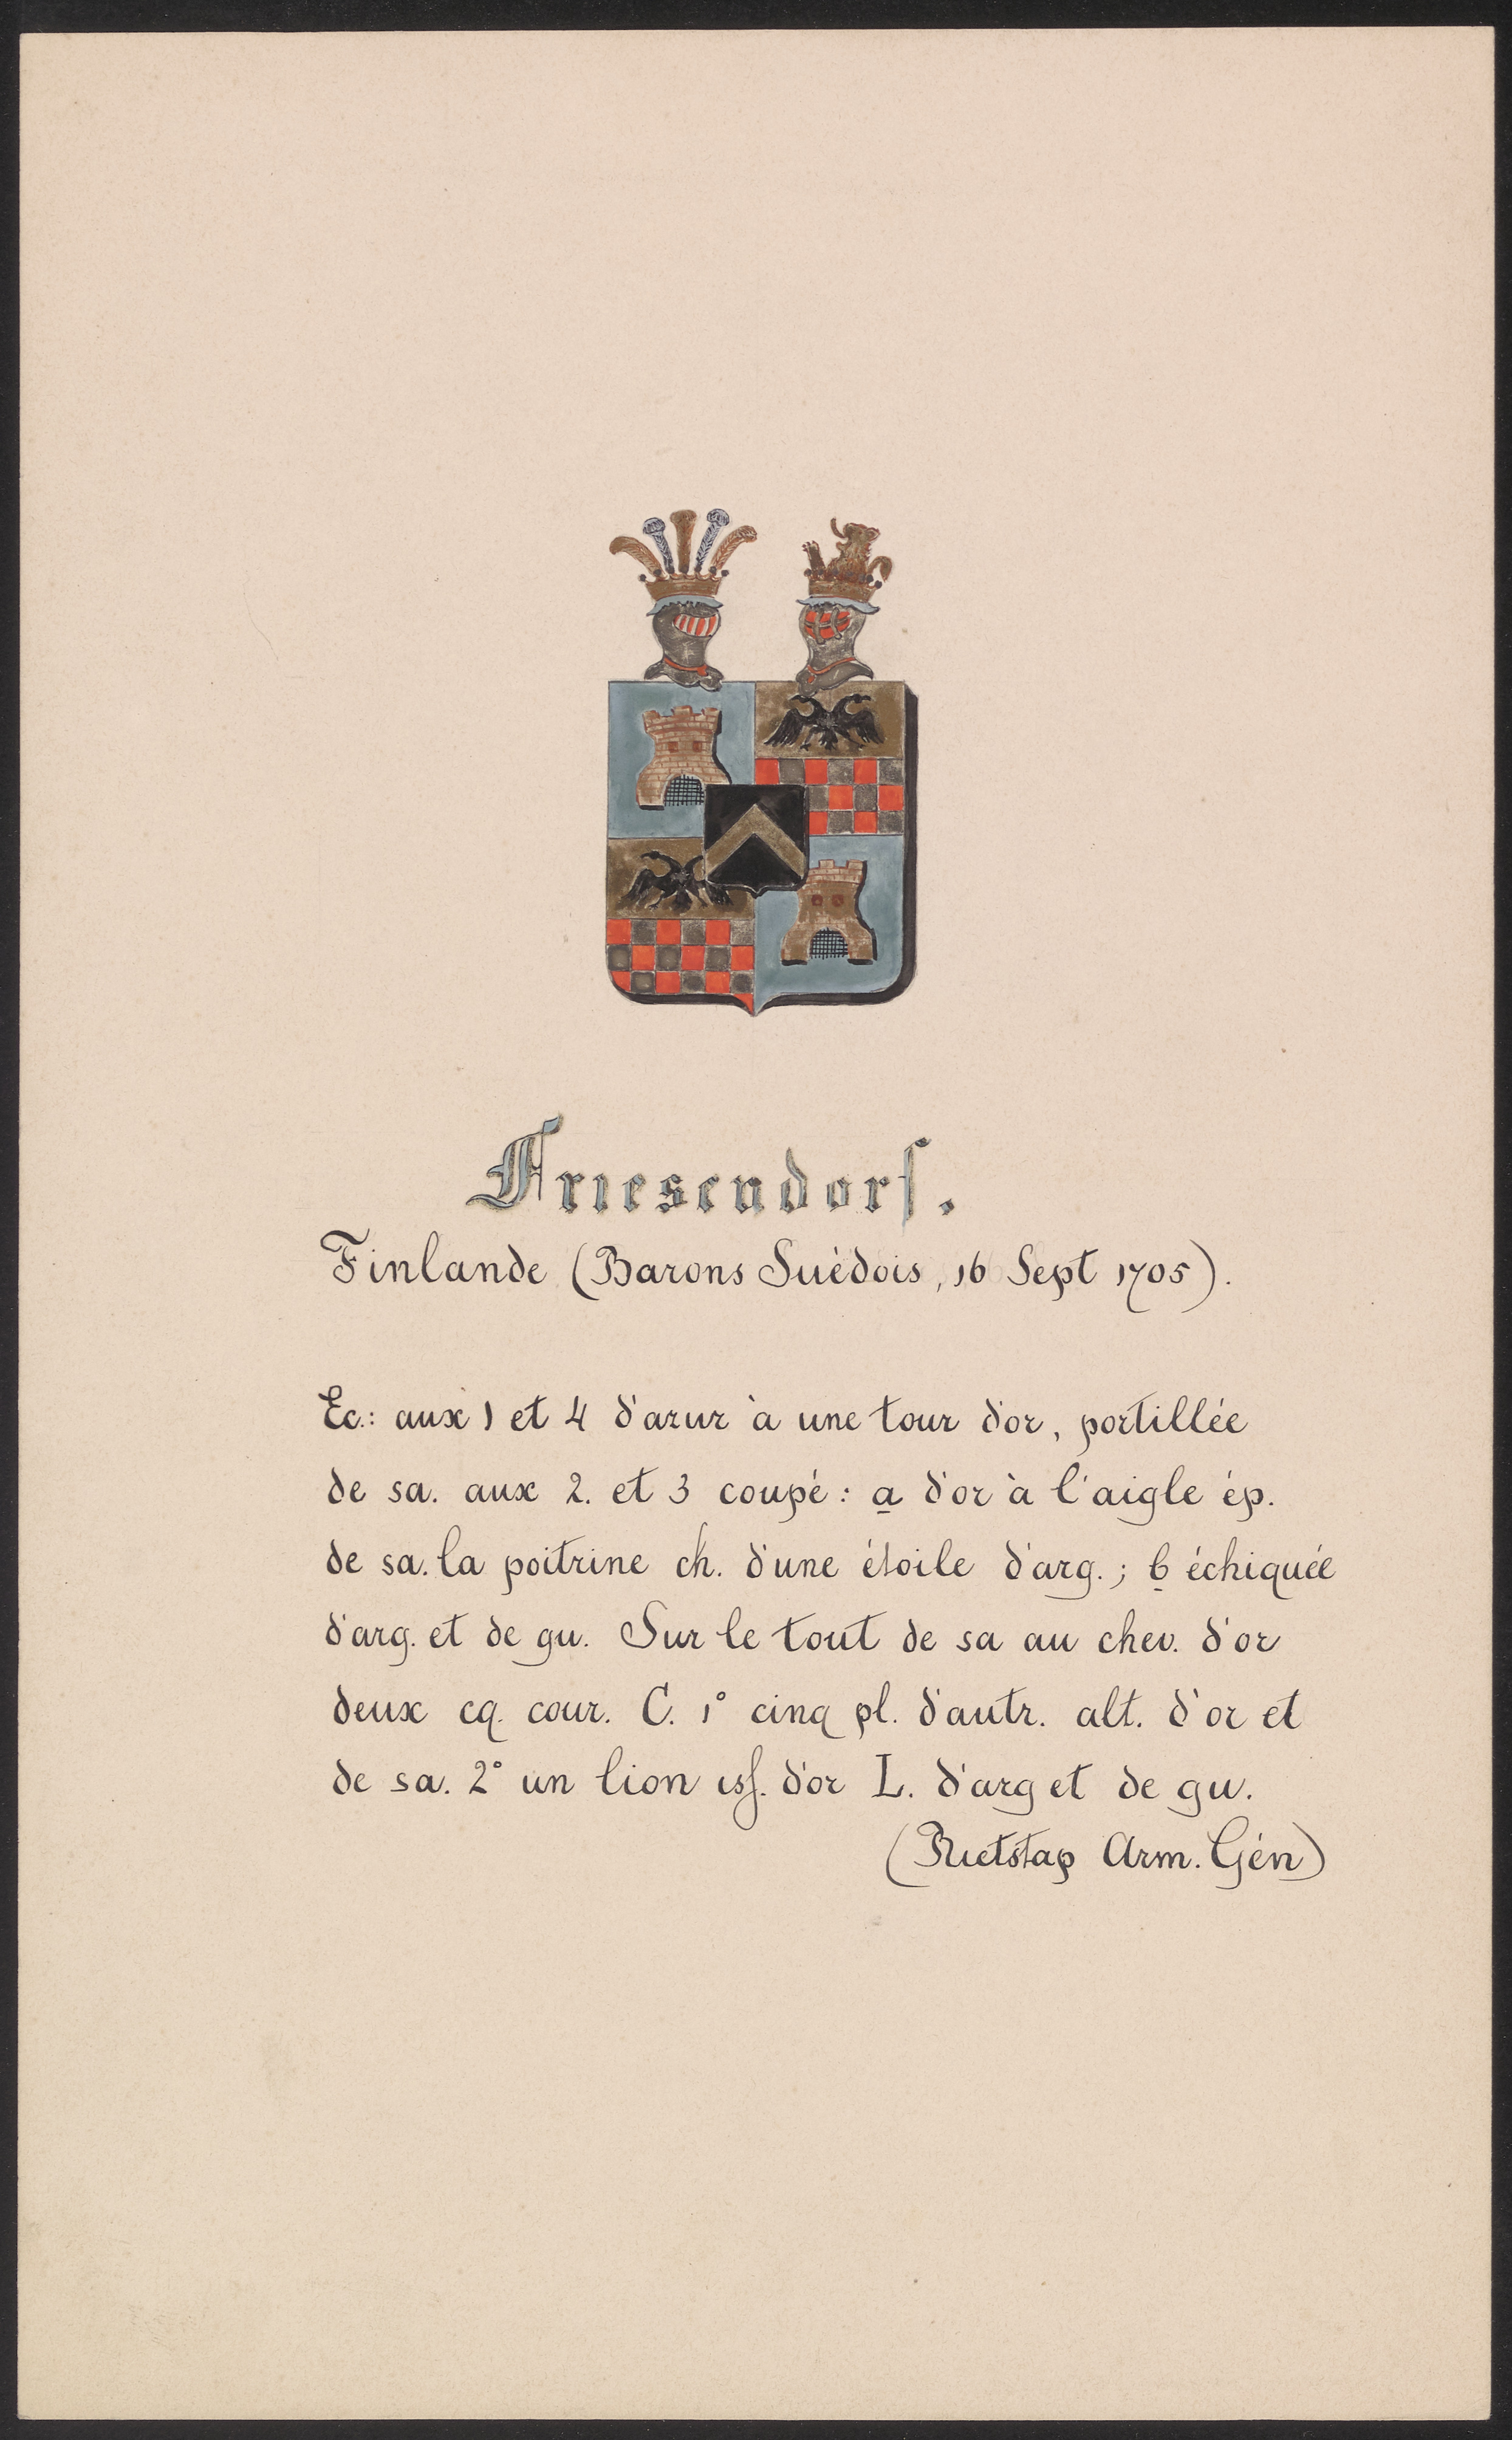 Friesendorf.
Finlande (Barons Suédois, 16 Sept 1705).
Ec.: aux 1 et 4 d'azur à une tour d'or, portillée
de sa. aux 2. et 3 coupé: a d'or à l'aigle ép.
de sa. la poitrine ch. d'une étoile d'arg.; b échiquée
d'arg. et de gu. Sur le tout de sa au chev. d'or
deux cq. cour. C. 1° cinq pl. d'autr. alt. d'or et
de sa. 2° un lion iss. d'or L. d'arg et de gu.
(Rietstap Arm. Gén)